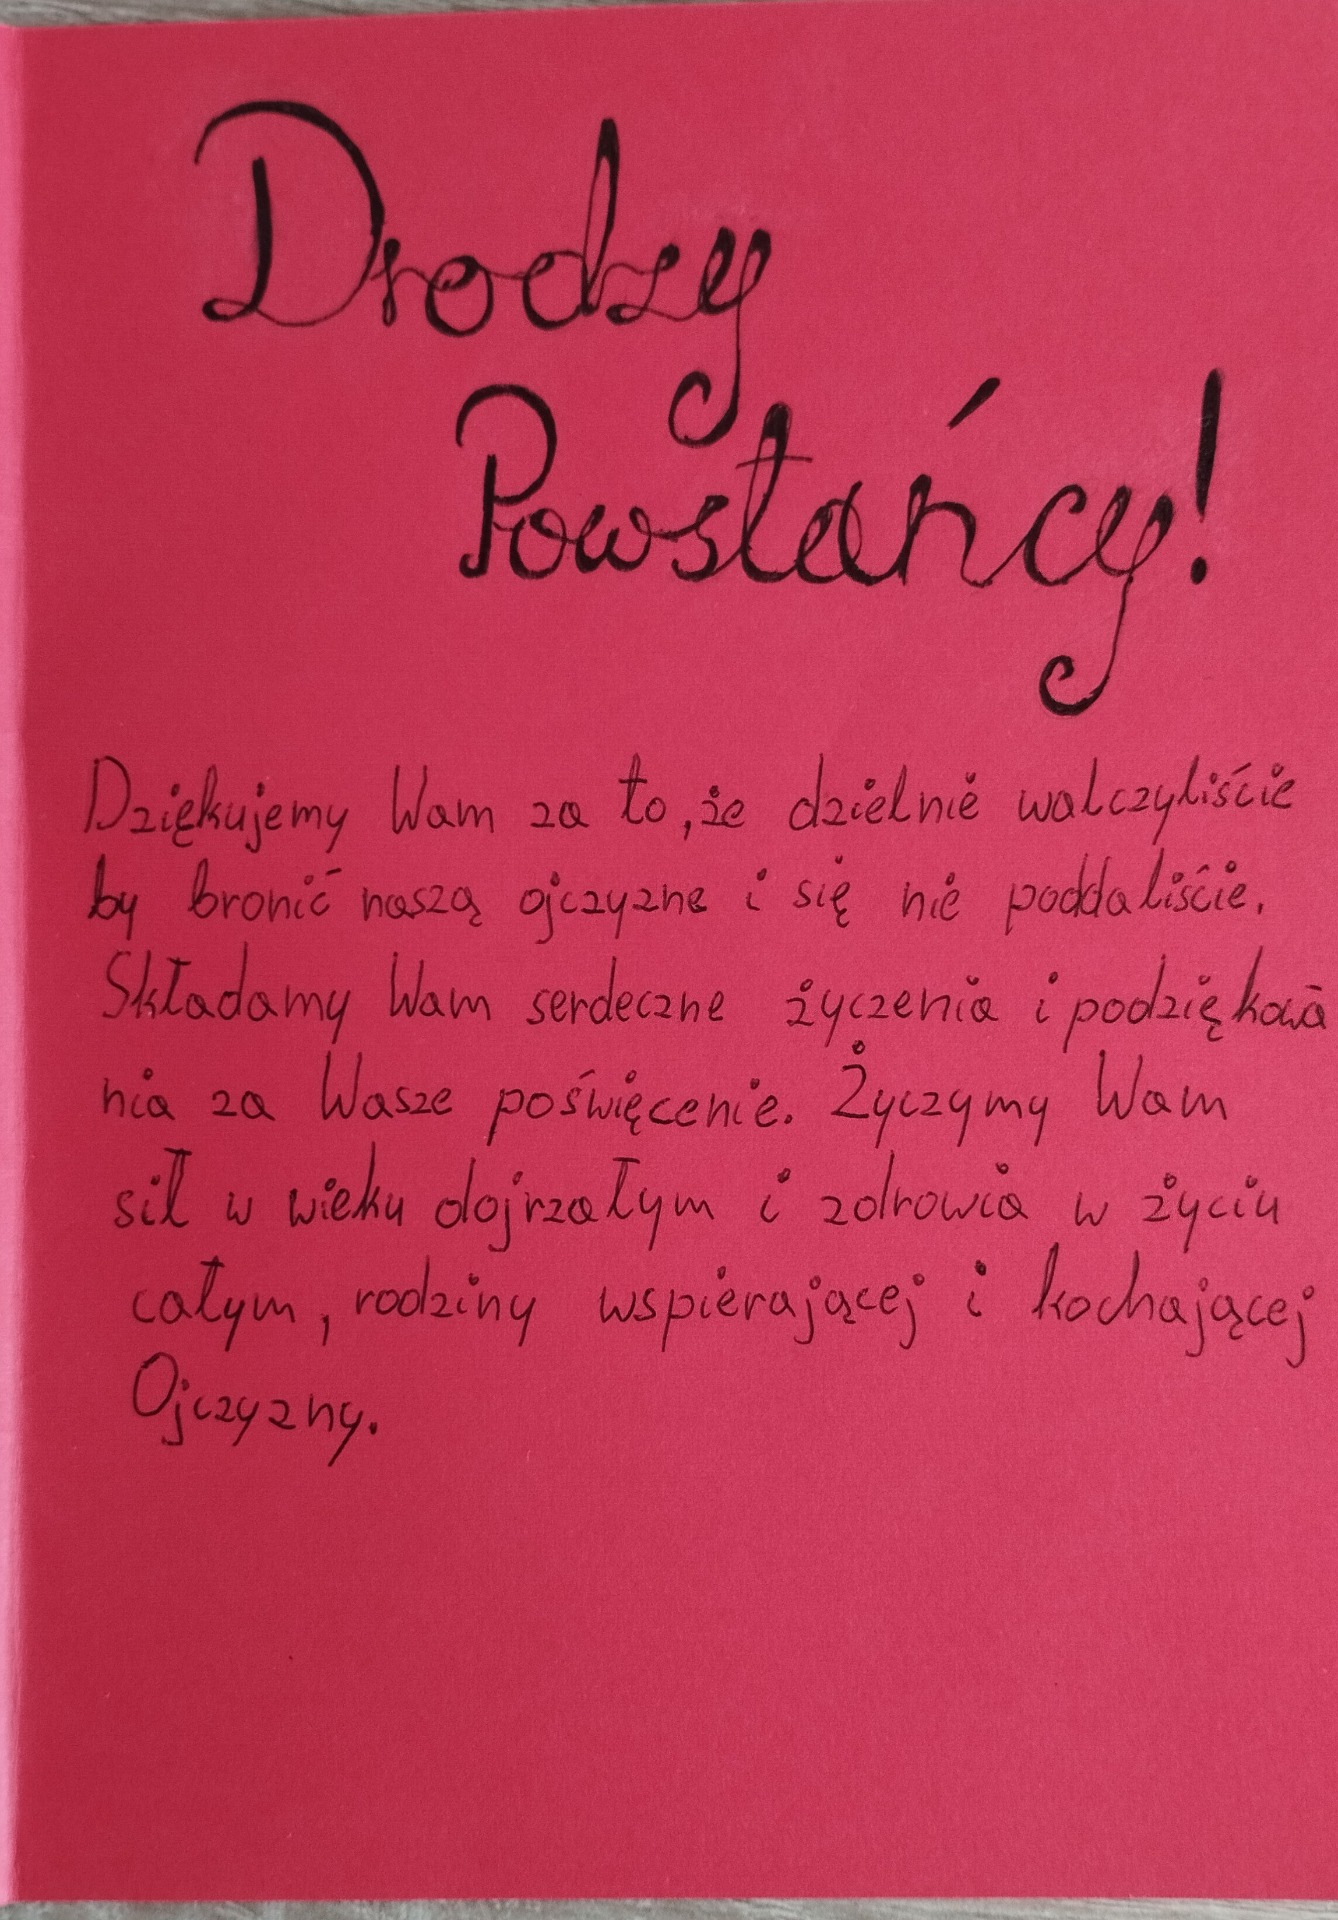 Drodzy
Powstańcy!
Dziękujemy Wam za to, że dzielnie walczyliście
by bronić naszą ojczyzne i się nie poddaliście.
Składamy Wam serdeczne życzenia i podziękowa
nia za Wasze poświęcenie. Życzymy Wam
sił w wieku dojrzałym i zdrowia w życiu
całym, rodziny wspierającej i kochającej
Ojczyzny.